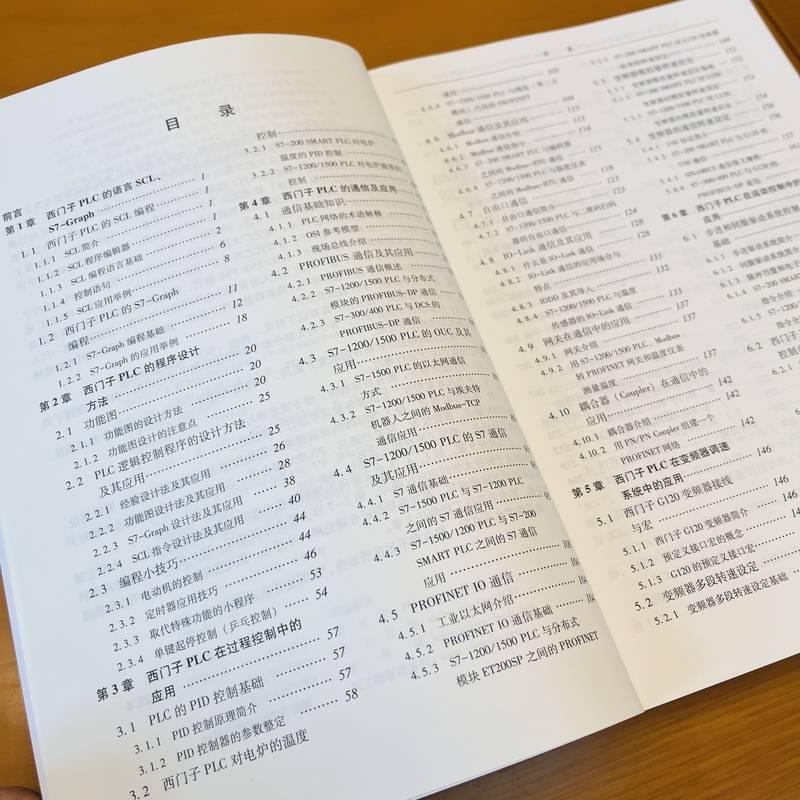 目 录
前言
第1章 西门子 PLC 的语言 SCL、
S7-Graph ………… 1
1.1 西门子 PLC 的 SCL 编程 ………… 1
1.1.1 SCL 简介 ………… 1
1.1.2 SCL 程序编辑器 ………… 2
1.1.3 SCL 编程语言基础 ………… 6
1.1.4 控制语句 ………… 8
1.1.5 SCL 应用举例 ………… 11
1.2 西门子 PLC 的 S7-Graph
编程 ………… 12
1.2.1 S7-Graph 编程基础 ………… 12
1.2.2 S7-Graph 的应用举例 ………… 18
第2章 西门子 PLC 的程序设计
方法 ………… 20
2.1 功能图 ………… 20
2.1.1 功能图的设计方法 ………… 20
2.1.2 功能图设计的注意点 ………… 25
2.2 PLC 逻辑控制程序的设计方法
及其应用 ………… 25
2.2.1 经验设计法及其应用 ………… 26
2.2.2 功能图设计法及其应用 ………… 28
2.2.3 S7-Graph 设计法及其应用 ………… 38
2.2.4 SCL 指令设计法及其应用 ………… 40
2.3 编程小技巧 ………… 44
2.3.1 电动机的控制 ………… 44
2.3.2 定时器应用技巧 ………… 46
2.3.3 取代特殊功能的小程序 ………… 53
2.3.4 单键起停控制（乒乓控制） ………… 54
第3章 西门子 PLC 在过程控制中的
应用 ………… 57
3.1 PLC 的 PID 控制基础 ………… 57
3.1.1 PID 控制原理简介 ………… 57
3.1.2 PID 控制器的参数整定 ………… 58
3.2 西门子 PLC 对电炉的温度
控制
3.2.1 S7-200 SMART PLC 对电炉
温度的 PID 控制
3.2.2 S7-1200/1500 PLC 对电炉温度的
控制
第4章 西门子 PLC 的通信及应用
4.1 通信基础知识
4.1.1 PLC 网络的术语解释
4.1.2 OSI 参考模型
4.1.3 现场总线介绍
4.2 PROFIBUS 通信及其应用
4.2.1 PROFIBUS 通信概述
4.2.2 S7-1200/1500 PLC 与分布式
模块的 PROFIBUS-DP 通信
4.2.3 S7-300/400 PLC 与 DCS 的
PROFIBUS-DP 通信
4.3 S7-1200/1500 PLC 的 OUC 及其
应用
4.3.1 S7-1500 PLC 的以太网通信
方式
4.3.2 S7-1200/1500 PLC 与埃夫特
机器人之间的 Modbus-TCP
通信应用
4.4 S7-1200/1500 PLC 的 S7 通信
及其应用
4.4.1 S7 通信基础
4.4.2 S7-1500 PLC 与 S7-1200 PLC
之间的 S7 通信应用
4.4.3 S7-1200/1500 PLC 与 S7-200
SMART PLC 之间的 S7 通信
应用
4.5 PROFINET IO 通信
4.5.1 工业以太网介绍
4.5.2 PROFINET IO 通信基础
4.5.3 S7-1200/1500 PLC 与分布式
模块 ET200SP 之间的 PROFINET
通信
4.5.4
通信
4.6 Modbus 通信及其应用
4.6.1 Modbus 通信介绍
4.6.2 Modbus 通信指令
4.6.3
之间的 Modbus-RTU 通信
4.6.4 S7-1200/1500 PLC 与温度仪表
之间的 Modbus-RTU 通信
4.7 自由口通信
4.7.1 自由口通信简介
4.7.2 S7-1200/1500 PLC 与二维码扫码
器的自由口通信
4.8 IO-Link 通信及其应用
4.8.1 什么是 IO-Link 通信
4.8.2 IO-Link 通信的应用场合与
特点
4.8.3 IODD 及其导入
4.8.4 S7-1200/1500 PLC 与温度
传感器的 IO-Link 通信
4.9 网关在通信中的应用
4.9.1 网关介绍
4.9.2 用 S7-1200 PLC、Modbus
转 PROFINET 网关和温度仪表
测量温度 ………… 137
4.10 耦合器（Coupler）在通信中的
应用 ………… 142
4.10.1 耦合器介绍 ………… 142
4.10.2 用 PN/PN Coupler 组建一个
PROFINET 网络 ………… 142
第5章 西门子 PLC 在变频器调速
系统中的应用 ………… 146
5.1 西门子 G120 变频器接线
与宏 ………… 146
5.1.1 西门子 G120 变频器简介
5.1.2 预定义接口宏的概念
5.1.3 G120 的预定义接口宏
5.2 变频器多段转速设定
5.2.1 变频器多段转速设定基础
第6章 西门子 PLC 在运动控制中的
应用
6.1 步进和伺服驱动系统控制
基础